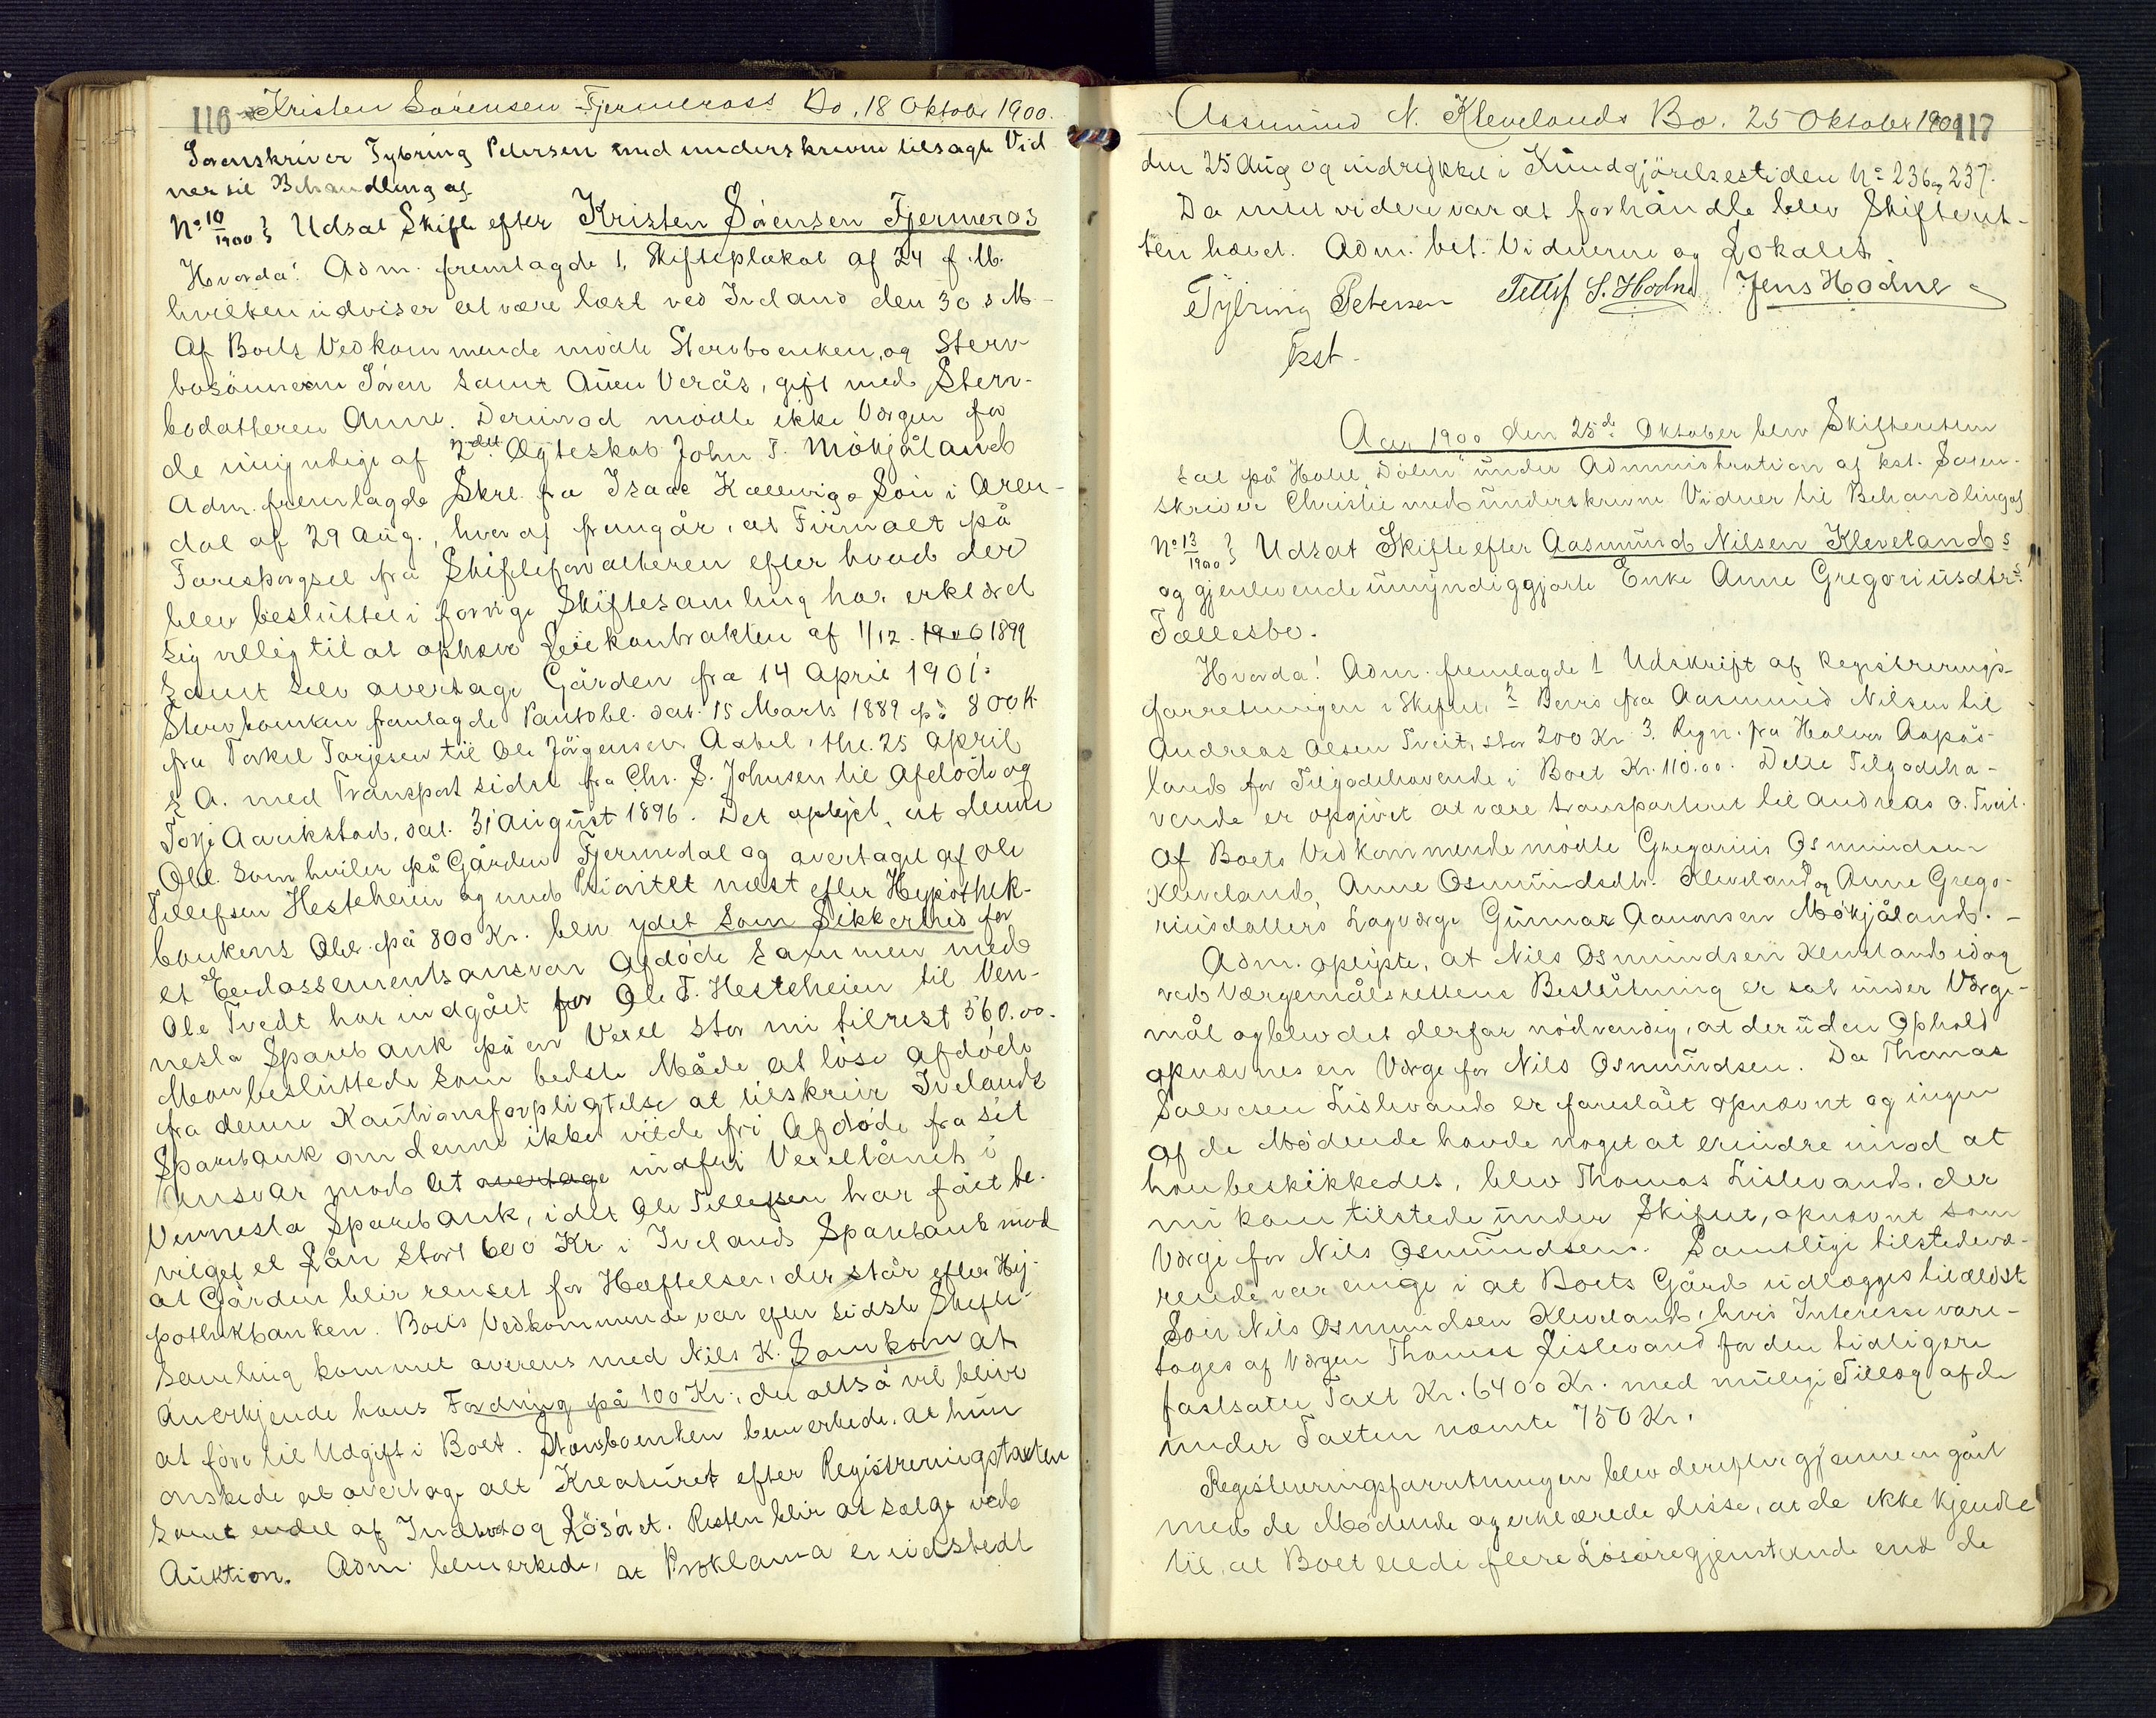 116 Kristen Sørensen Fjermeross Bo, 18 Oktobr 1900.
Sorenskriver Tybring Petersen med underskrevne tilsagte Vid-
ner til Behandling af
No 10/1900 } Udsat Skifte efter Kristen Sørensen Fjermeros
Hvorda! Adm. fremlagde 1, Skifteplakat af 24 f. M.
hvilken udviser at være læst ved Iveland den 30 s M-
Af Boets Vedkommende mødte Stervboenken, og Sterv-
bosønnerne Søren samt Auen Verås, gift med Sterv-
bodatteren Anne. Derimod mødte ikke Værgen for
de umyndige af 2det Ægteskab John T. Mökjåland
Adm. fremlagde Skr. fra Isaac Kallevig & Søn i Aren-
dal af 29 Aug., hvoraf fremgår, at Firmaet på
Forespørgsel fra Skifteforvalteren efter hvad der
blev besluttet i forrige Skiftesamling har erklæret
sig villig til at ophæve Leiekontrakten af 1/12. 1906 1899
samt selv overtage Gården fra 14 April 1901.
Stervboenken fremlagde Pantobl. dat. 15 Marts 1889 på 800 K
fra Torkel Tarjesen til Ole Jörgensen Aabel, thl. 25 April
s A. med Transport sidst fra Chr. S. Johnsen til Afdöde og
Torje Aavikstad, dat. 31 August 1896. Det oplyst, at denne
Obl. som hviler på Gården Fjermedal og overtaget af Ole
Tellefsen Hesteheien og med Prioritet næst efter Hypothek-
bankens Obl. på 800 Kr. blev ydet som Sikkerhed for
et Endossementsansvar Afdöde sammen med
Ole Tvedt har indgået for Ole T. Hesteheien til Ven-
nesla Sparebank på en Vexel stor nu tilrest 560.00.
Man besluttede som bedste Måde at löse Afdöde
fra denne Kautionsforpligtelse at tilskrive Ivelands
Sparebank om denne ikke vilde fri Afdöde fra sit
Ansvar mod at overtage indfri Vexellånet i
Vennesla Sparebank, idet Ole Tellefsen har fået be-
vilget et Lån stort 600 Kr i Ivelands Sparebank mod
at Gården blir renset for Hæftelser, der står efter Hy-
pothekbanken. Boets Vedkommende var efter sidste Skifte-
samling kommet overens med Nils K. Somkom at
anerkjende hans Fordring på 100 Kr., der altså vil blive
at føre til Udgift i Boet. Stervboenken bemerkede, at hun
önskede at overtage alt Kreaturet efter Registreringstaxten
samt endel af Indbod og Lösöret. Resten blir at sælge ved
Auktion. Adm. bemerkede, at Proklama er udstedt
Aasmund N. Klevelands Bo. 25 Oktober 1900 117
den 25 Aug og indrykket i Kundgjörelsestiden No 236 og 237.
Da intet videre var at forhandle blev Skifteret-
ten hævet. Adm. bet. Vidnerne og Lokalet
Tybring Petersen Tellef S. Hodne Jens Hodne
kst.
Aar 1900 den 25de Oktober blev Skifteretten
sat på Hotel "Dölen" under Administration af kst. Soren-
skriver Christie med underskrevne Vidner til Behandling af
No 13/1900 } Udsat Skifte efter Aasmund Nilsen Klevelands
og gjenlevende umyndiggjorte Enke Anne Gregoriusdtrs
Fællesbo.
Hvorda! Adm. fremlagde 1 Udskrift af Registrerings-
forretningen i Skiftet, 2 Bevis fra Aasmund Nilsen til
Andreas Olsen Tveit, stor 200 Kr 3, Regn. fra Halvor Aapås-
land for Tilgodehavende i Boet Kr. 110.00. Dette Tilgodeha-
vende er opgivet at være transporteret til Andreas O. Tveit.
Af Boets Vedkommende mödte Gregorius Osmundsen
Kleveland, Anne Osmundsdtr. Kleveland og Anne Grego-
riusdatters Lagværge Gunnar Aanonsen Mökjåland. -
Adm. oplyste, at Nils Osmundsen Kleveland idag
ved Værgemålsrettens Beslutning er sat under Værge-
mål og blev det derfor nödvendig, at der uden Ophold
opnævnes en Værge for Nils Osmundsen. Da Thomas
Salvesen Lislevand er foreslået opnævnt og ingen
af de Mödende havde noget at erindre imod at
han beskikkedes, blev Thomas Lislevand, der
nu kom tilstede under Skiftet, opnævnt som
Værge for Nils Osmundsen. Samtlige tilstedevæ-
rende var enige i at Boets Gård udlægges til ældste
Sön Nils Osmundsen Kleveland, hvis Interesse vare-
tages af Værgen Thomas Lislevand for den tidligere
fastsatte Taxt Kr. 6400 Kr. med mulige Tillæg af de
under Taxten nævnte 750 Kr.
Registreringsforretningen blev derefter gjennemgået
med de Mödende og erklærede disse, at de ikke kjendte
til, at Boet eiede flere Lösöregjenstande end de